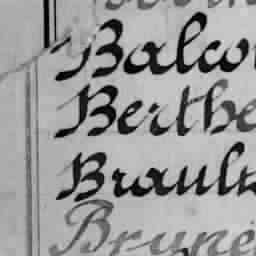 Balco
Berthe
Brault
Brune